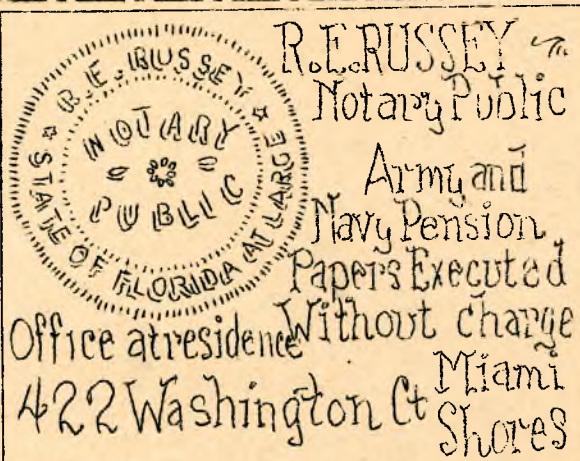 R.E. RUSSEY
STATE OF FLORIDA AT LARGE
NOTARY
PUBLIC
R.E.RUSSEY
Notary Public
Army and
Navy Pension
Papers Executed
Without charge
Office at residence
422 Washington Ct
Miami
Shores